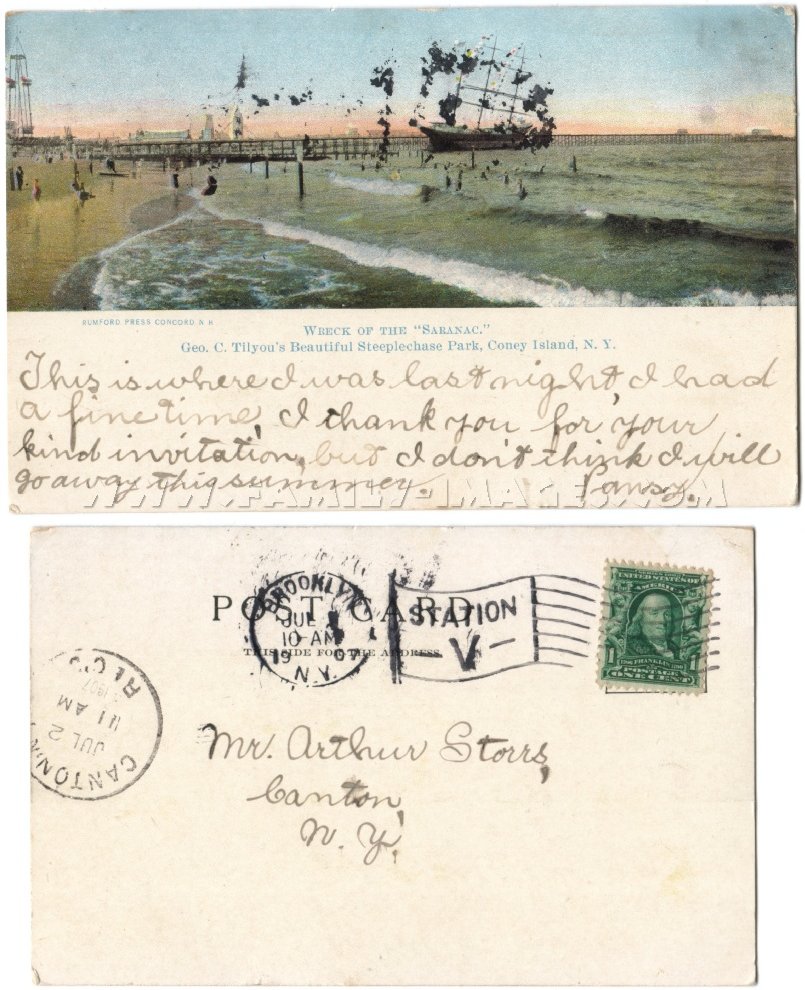 RUMFORD PRESS CONCORD N H
WRECK OF THE "SARANAC."
Geo. C. Tilyou's Beautiful Steeplechase Park, Coney Island, N. Y.
This is where I was last night I had
a fine time, I thank you for your
kind invitation, but I don't think I will
go away this summer. Pansy.
WWW.FAMILY-IMAGES.COM
POST CARD
THIS SIDE FOR THE ADDRESS
BROOKLYN
JUL 1
10-AM
19 07
N.Y.
STATION
-V-
UNITED STATES OF
AMERICA
1 FRANKLIN 1
POSTAGE
ONE CENT
CANTON, N.Y.
JUL 2
11 AM
1907
REC'D
Mr. Arthur Storrs,
Canton,
N. Y.